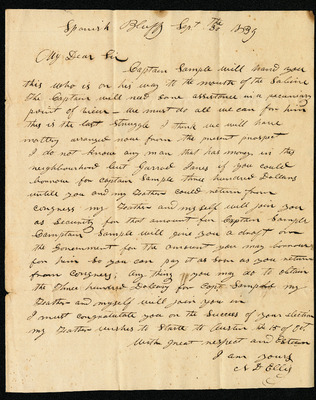 Spanish Bluff Sept the 30 1839
My Dear Sir
Captain Sample will hand you
this who is on his way to the mouth of the Sabine
the Captain will need some assistance in a pecuniary
point of view we must do all we can for him
this is the last struggle I think we will have
matters arranged now from the present prospect
I do not know any man that has money in this
neighbourhood but Garrod Janes if you could
borrow for Captain Sample three hundred Dollars
untill you and my Father could return from
congress my Father and myself will join you
as Security for that amount for Captain Sample
Camptain Sample will give you a draft on
the Government for the amount you may borrow
for him So you can pay it as son as you return
from Congress; Any thing you may do to obtain
the three hundred Dollars for Capt Sample my
Father and myself will join you in
I must congratulate you on the Success of your election
my Father wishes to Starte to Austin the 15 of Oct
With great respect and Esteem
I am yours
N D Ellis